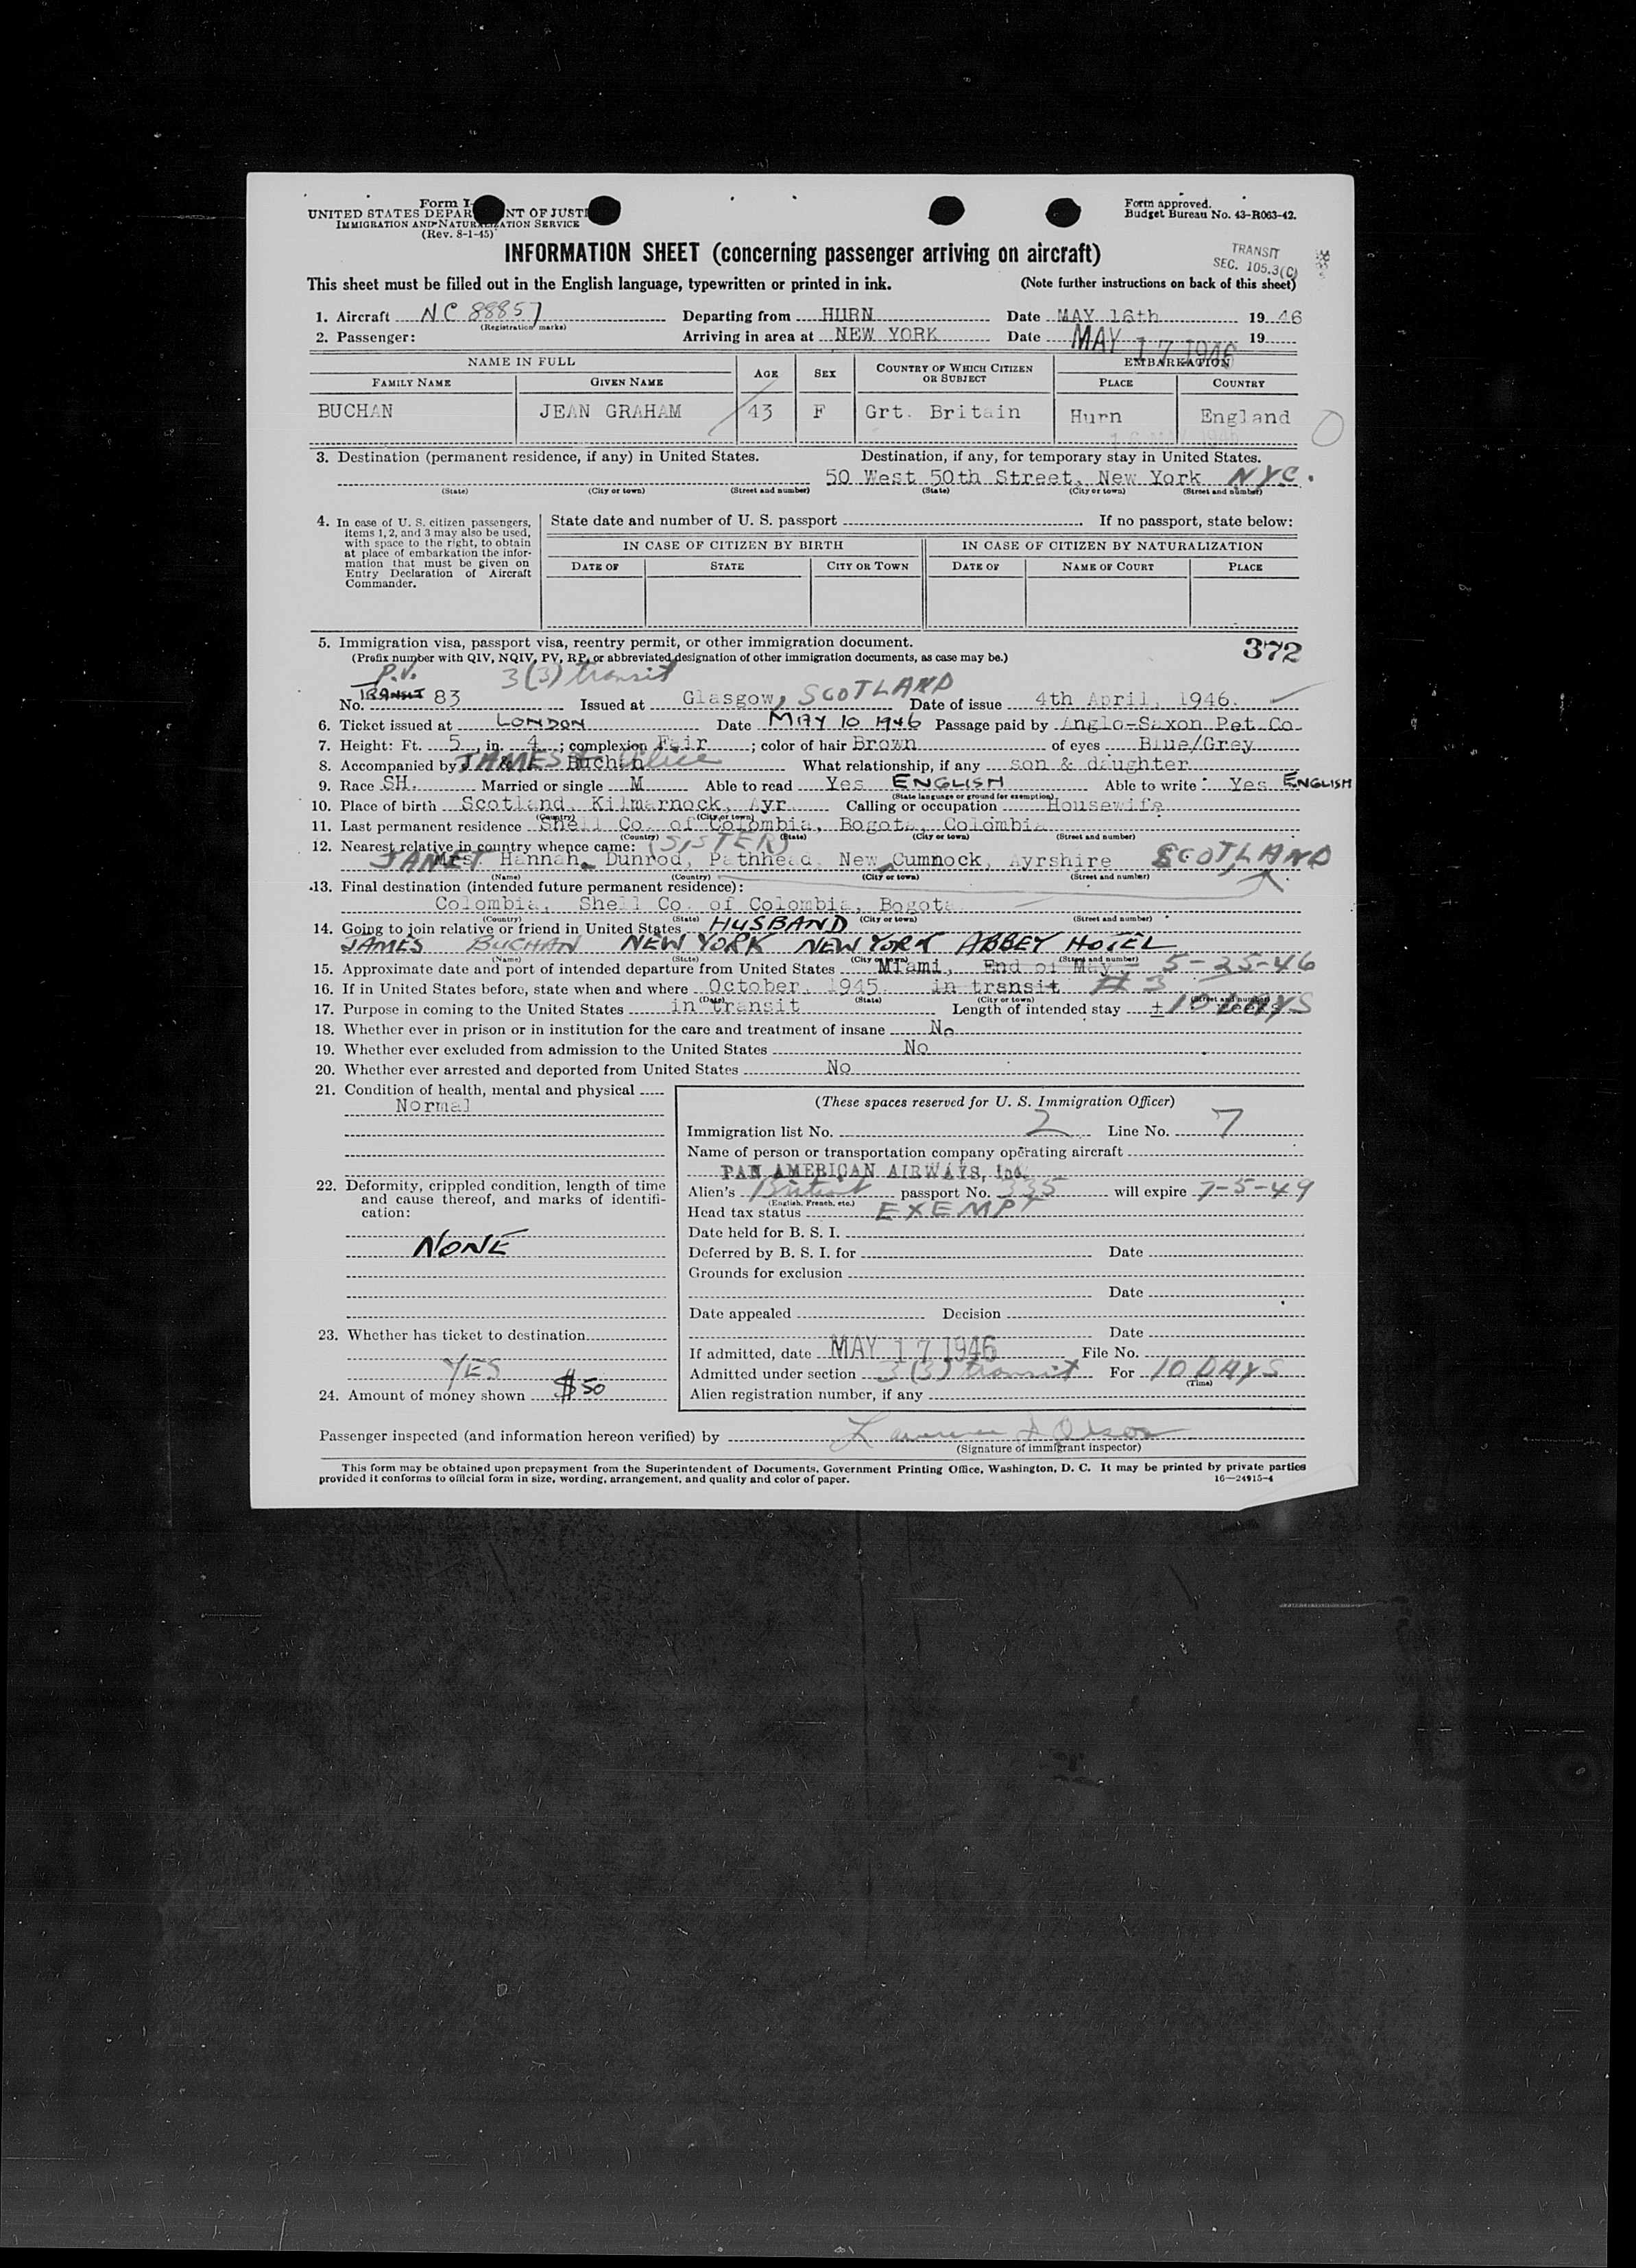 Form I-
UNITED STATES DEPAR NT OF JUSTI
IMMIGRATION AND NATURALIZATION SERVICE
(Rev. 8-1-45)
Form approved.
Budget Bureau No. 43-R063-42.
INFORMATION SHEET (concerning passenger arriving on aircraft)
TRANSIT
SEC. 105.3(C)
This sheet must be filled out in the English language, typewritten or printed in ink. (Note further instructions on back of this sheet)
1. Aircraft NC 88857 Departing from HURN Date MAY 16th 1946
(Registration marks)
2. Passenger: Arriving in area at NEW YORK Date MAY 17 1946 19
NAME IN FULL AGE SEX COUNTRY OF WHICH CITIZEN OR SUBJECT EMBARKATION
FAMILY NAME GIVEN NAME PLACE COUNTRY
BUCHAN JEAN GRAHAM 43 F Grt. Britain Hurn England
3. Destination (permanent residence, if any) in United States. Destination, if any, for temporary stay in United States.
50 West 50th Street, New York NYC.
(State) (City or town) (Street and number) (State) (City or town) (Street and number)
4. In case of U. S. citizen passengers, items 1, 2, and 3 may also be used, with space to the right, to obtain at place of embarkation the information that must be given on Entry Declaration of Aircraft Commander.
State date and number of U. S. passport If no passport, state below:
IN CASE OF CITIZEN BY BIRTH IN CASE OF CITIZEN BY NATURALIZATION
DATE OF STATE CITY OR TOWN DATE OF NAME OF COURT PLACE
5. Immigration visa, passport visa, reentry permit, or other immigration document. 372
(Prefix number with QIV, NQIV, PV, RP, or abbreviated designation of other immigration documents, as case may be.)
P.V. 3(3) transit
No. TRANSIT 83 Issued at Glasgow, SCOTLAND Date of issue 4th April, 1946.
6. Ticket issued at LONDON Date MAY 10 1946 Passage paid by Anglo-Saxon Pet. Co.
7. Height: Ft. 5, in. 4; complexion Fair; color of hair Brown of eyes Blue/Grey
8. Accompanied by JAMES & Alice Buchan What relationship, if any son & daughter
9. Race SH. Married or single M Able to read Yes ENGLISH Able to write Yes ENGLISH
(State language or ground for exemption)
10. Place of birth Scotland, Kilmarnock, Ayr. Calling or occupation Housewife
(Country) (City or town)
11. Last permanent residence Shell Co. of Colombia, Bogota, Colombia
(Country) (State) (City or town) (Street and number)
12. Nearest relative in country whence came: (SISTER)
JANET Mrs. Hannah, Dunrod, Pathhead, New Cumnock, Ayrshire SCOTLAND
(Name) (Country) (City or town) (Street and number)
13. Final destination (intended future permanent residence):
Colombia, Shell Co. of Colombia, Bogota
(Country) (State) (City or town) (Street and number)
14. Going to join relative or friend in United States HUSBAND
JAMES BUCHAN NEW YORK NEW YORK ABBEY HOTEL
(Name) (State) (City or town) (Street and number)
15. Approximate date and port of intended departure from United States Miami, End of May - 5-25-46
16. If in United States before, state when and where October, 1945. in transit # 3
(Date) (State) (City or town) (Street and number)
17. Purpose in coming to the United States in transit Length of intended stay ± 10 DAYS
18. Whether ever in prison or in institution for the care and treatment of insane No
19. Whether ever excluded from admission to the United States No
20. Whether ever arrested and deported from United States No
21. Condition of health, mental and physical
Normal
22. Deformity, crippled condition, length of time and cause thereof, and marks of identification:
NONE
23. Whether has ticket to destination
YES
24. Amount of money shown $50
(These spaces reserved for U. S. Immigration Officer)
Immigration list No. 2 Line No. 7
Name of person or transportation company operating aircraft
PAN AMERICAN AIRWAYS, Inc.
Alien's British passport No. 335 will expire 7-5-49
(English, French, etc.)
Head tax status EXEMPT
Date held for B. S. I.
Deferred by B. S. I. for Date
Grounds for exclusion
Date
Date appealed Decision
Date
If admitted, date MAY 17 1946 File No.
Admitted under section 3(3) transit For 10 DAYS
(Time)
Alien registration number, if any
Passenger inspected (and information hereon verified) by Olson
(Signature of immigrant inspector)
This form may be obtained upon prepayment from the Superintendent of Documents, Government Printing Office, Washington, D. C. It may be printed by private parties
provided it conforms to official form in size, wording, arrangement, and quality and color of paper. 16—24915-4